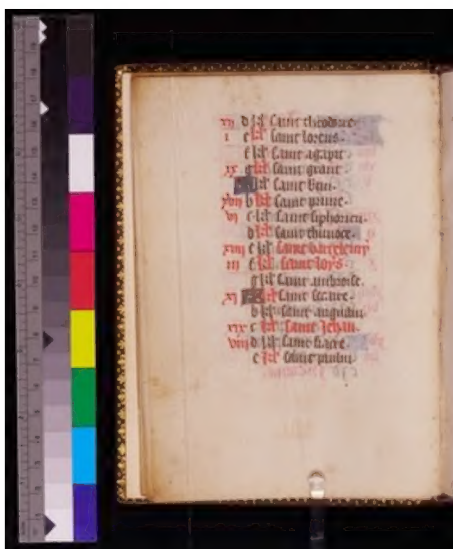 xij d kl' Saint theodore.
i e kl' Saint lorens.
f kl' Saint agapit.
ix g kl' Saint grant.
kl' Saint
xvij b kl' Saint prime.
vi c kl' Saint siphorien.
d kl' Saint thimoce.
xiiij e kl' Saint barthelemy
iij f kl' Saint loys.
g kl' Saint ambroise.
xi kl' Saint
b kl' Saint augustin.
xix c kl' Saint Jehan.
viij d kl' Saint fiacre.
e kl' Saint